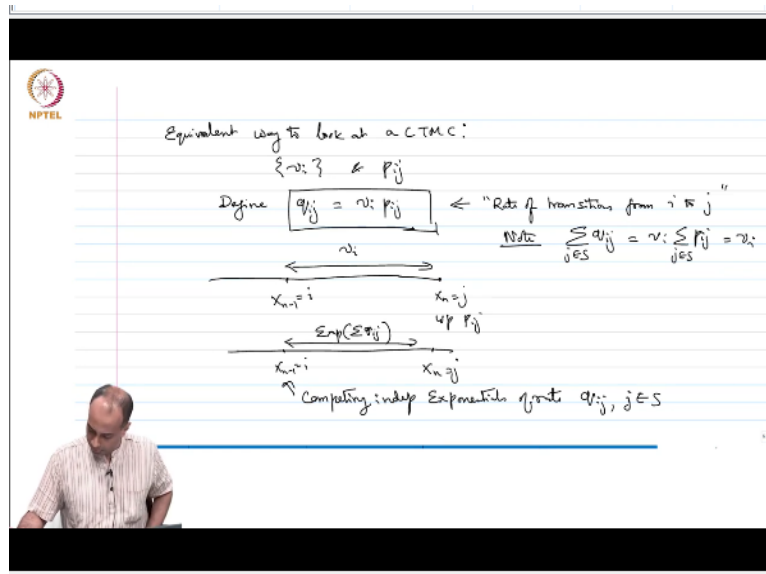 NPTEL
Equivalent way to look at a CTMC:
{νi} & Pij
Define qij = νi Pij ← "Rate of transitions from i to j"
Note Σj∈S qij = νi Σj∈S Pij = νi
νi
Xn-1=i Xn=j
wp Pij
Exp(Σqij)
Xn-1=i Xn=j
↑ Competing indep Exponentials of rate qij, j∈S